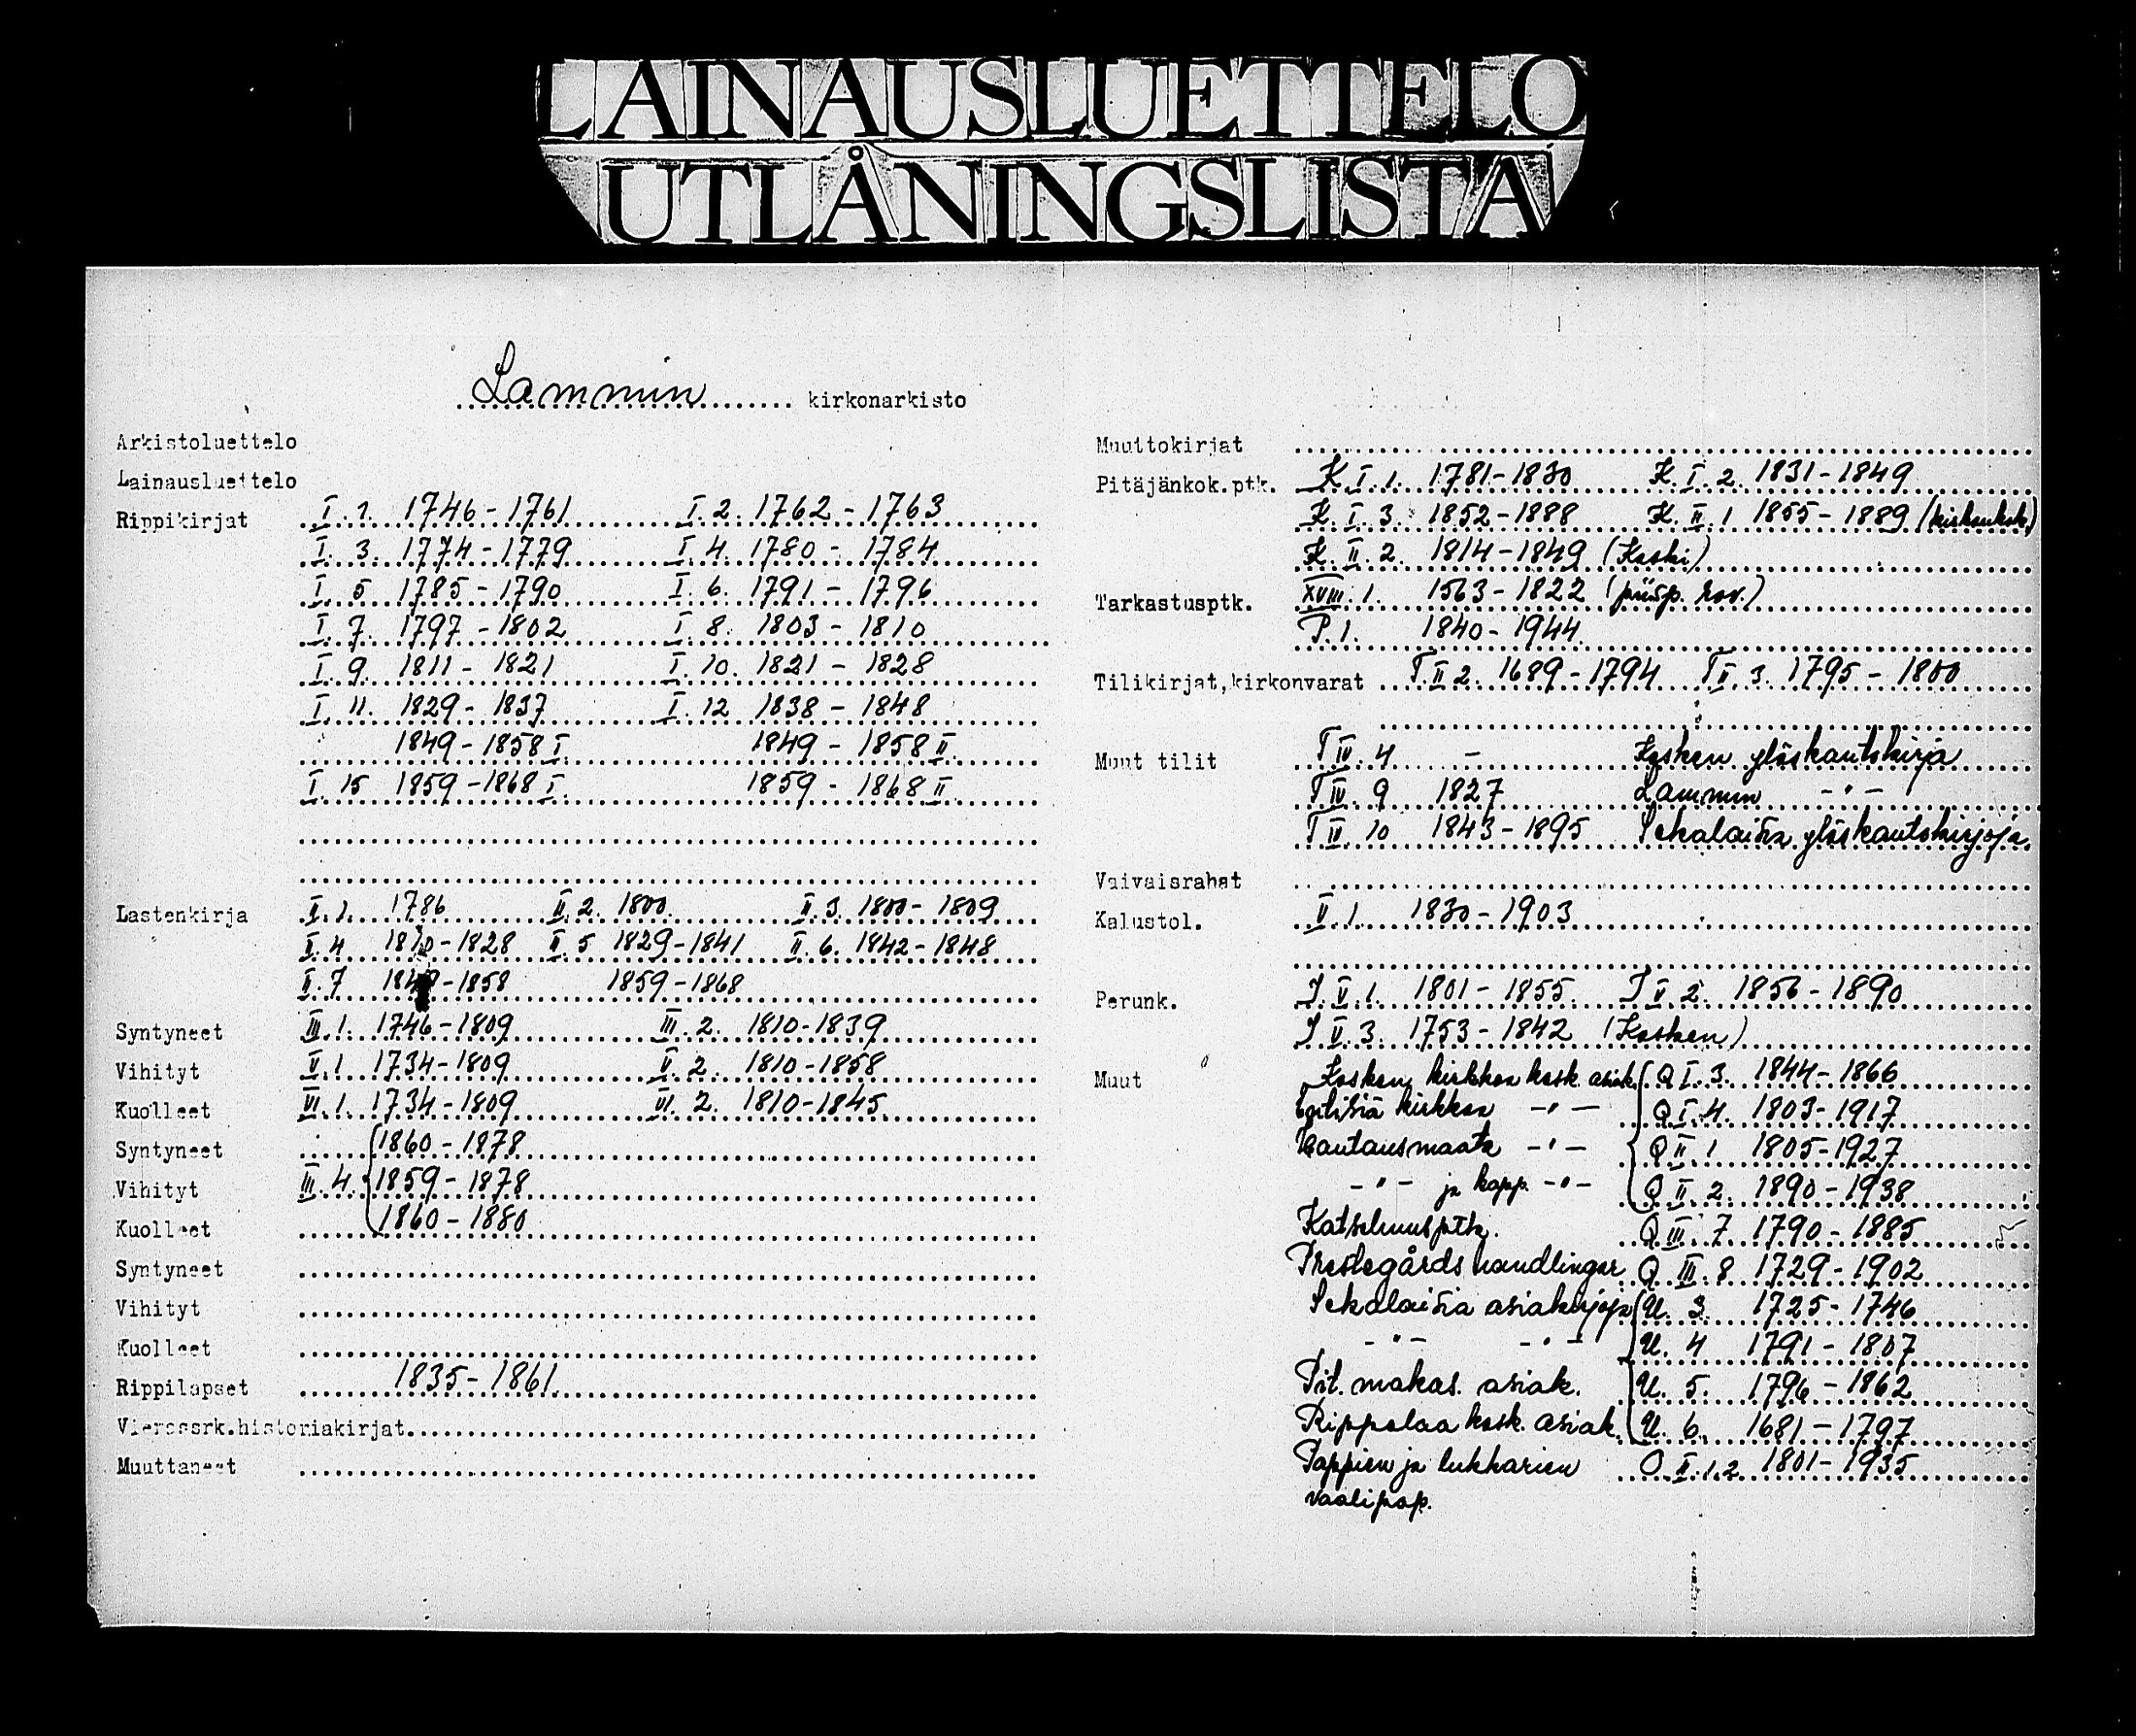 LAINAUSLUETTELO
UTLÅNINGSLISTA
Lammin kirkonarkisto
Arkistoluettelo
Lainausluettelo
Rippikirjat I. 1. 1746-1761 I. 2. 1762-1763
I. 3. 1774-1779 I. 4. 1780-1784
I. 5 1785-1790 I. 6. 1791-1796
I. 7. 1797-1802 I. 8. 1803-1810
I. 9. 1811-1821 I. 10. 1821-1828
I. 11. 1829-1837 I. 12 1838-1848
1849-1858 I. 1849-1858 II.
I. 15 1859-1868 I. 1859-1868 II.
Lastenkirja II. 1. 1786 II. 2. 1800 II. 3. 1800-1809
II. 4 1810-1828 II. 5 1829-1841 II. 6. 1842-1848
II. 7 1849-1858 1859-1868
Syntyneet III. 1. 1746-1809 III. 2. 1810-1839
Vihityt V. 1 1734-1809 V. 2. 1810-1858
Kuolleet VI. 1. 1734-1809 VI. 2. 1810-1845
Syntyneet 1860-1878
Vihityt III. 4. 1859-1878
Kuolleet 1860-1880
Syntyneet
Vihityt
Kuolleet
Rippilapset 1835-1861
Vierassrk.historiakirjat
Muuttaneet
Muuttokirjat
Pitäjänkok.ptk. K. I. 1. 1781-1830 K. I. 2. 1831-1849
K. I. 3. 1852-1888 K. II. 1 1855-1889 (kirkonkok.)
K. II. 2. 1814-1849 (Koski)
Tarkastusptk. XVIII. 1. 1563-1822 (piisp. rov.)
P. 1. 1840-1944
Tilikirjat,kirkonvarat T. II 2. 1689-1794 T II. 3. 1795-1800
Muut tilit T IV. 4 - Kosken ylöskantokirja
T IV. 9 1827 Lammin -"-
T IV. 10 1843-1895 Sekalaisia ylöskantokirjoja
Vaivaisrahat
Kalustol. V. 1. 1830-1903
Perunk. J. V. 1. 1801-1855 J V. 2. 1856-1890
J. V. 3. 1753-1842 (Kosken)
Muut Kosken kirkkoa kosk. asiak. Q I. 3. 1844-1866
kirkkoa -"- Q I. 4. 1803-1917
Hautausmaata -"- Q II. 1 1805-1927
-"- ja kapp. -"- Q II. 2. 1890-1938
Katselmusptk. Q III. 7 1790-1885
Prestegårds handlingar Q III. 8 1729-1902
Sekalaisia asiakirjoja U. 3. 1725-1746
-"- -"- U. 4 1791-1807
Pit. makas. asiak. U. 5. 1796-1862
Rippolaa kosk. asiak. U. 6. 1681-1797
Pappien ja lukkarien O II. 1.2 1801-1935
vaalipap.